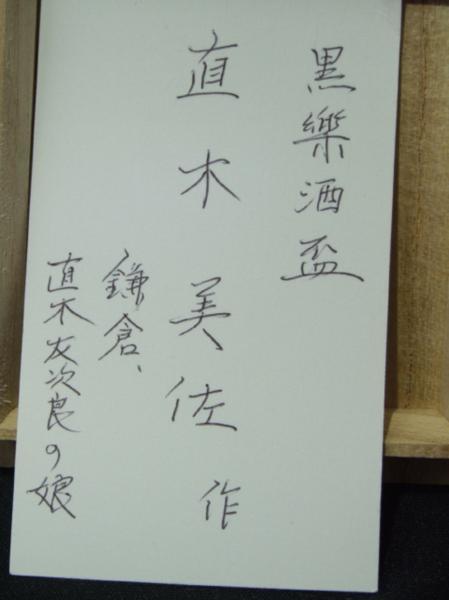 黒樂酒盃
直木美佐作
鎌倉、
直木友次良の娘